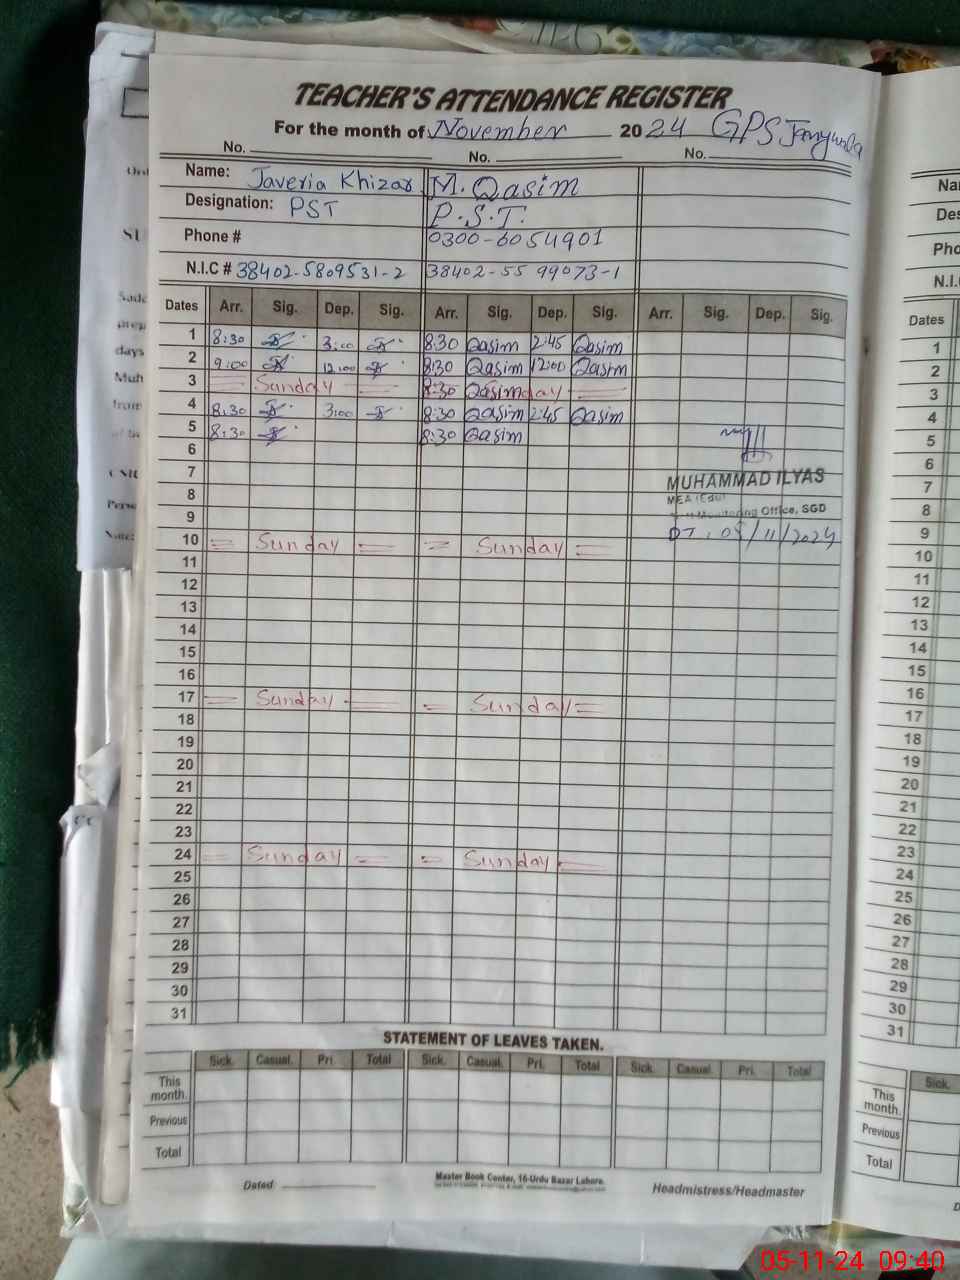 TEACHER'S ATTENDANCE REGISTER
For the month of November 2024 GPS
No. No. No.
Name: Javeria Khizar M. Qasim
Designation: PST P.S.T.
Phone # 0300-6054901
N.I.C # 38402-5809531-2 38402-55 99073-1
Dates Arr. Sig. Dep. Sig. Arr. Sig. Dep. Sig. Arr. Sig. Dep. Sig.
1 8:30 3:00 8:30 Qasim 2:45 Qasim
2 9:00 12:00 8:30 Qasim 12:00 Qasim
3 = Sunday = 8:30 Qasim day =
4 8:30 3:00 8:30 Qasim 2:45 Qasim
5 8:30 8:30 Qasim
6
7
MUHAMMAD ILYAS
8
MEA (Edu)
9
Monitoring Office, SGD
10 = Sunday = = Sunday =
DT. 05/11/2024
11
12
13
14
15
16
17 = Sunday = = Sunday =
18
19
20
21
22
23
24 = Sunday = = Sunday =
25
26
27
28
29
30
31
STATEMENT OF LEAVES TAKEN.
Sick. Casual. Pri. Total Sick. Casual. Pri. Total Sick. Casual Pri. Total
This month.
Previous
Total
Dated:
Master Book Center, 16-Urdu Bazar Lahore.
Headmistress/Headmaster
Na
Des
Pho
N.I.
Dates
1
2
3
4
5
6
7
8
9
10
11
12
13
14
15
16
17
18
19
20
21
22
23
24
25
26
27
28
29
30
31
Sick.
This month.
Previous
Total
05-11-24 09:40